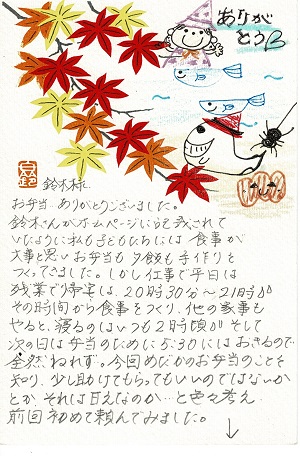 ありが
とう
鈴木様
お弁当ありがとうございました。
鈴木さんがホームページに記されて
いたように私も子どもたちには食事が
大事と思いお弁当も夕飯も手作りと
つくってきました。しかし仕事で平日は
残業で帰宅は、20時30分〜21時が
その時間から食事をつくり、他の家事も
やると、寝るのはいつも2時頃がそして
次の日は弁当のために5:30にはおきるので
全然ねれず。今回めびかのお弁当のことを
知り、少し助けてもらってもいいのではないか
とか、それは甘えなのか…と色々考え
前回初めて頼んでみました。
↓